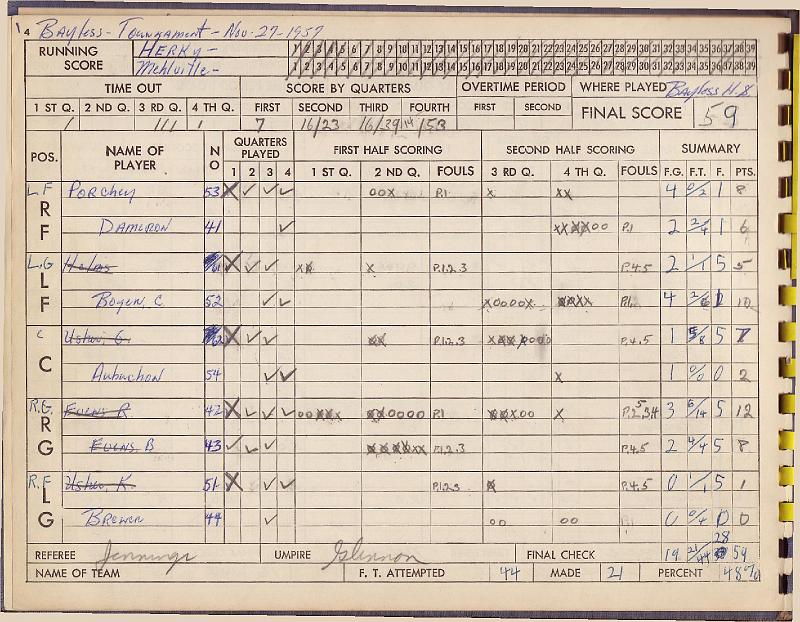 14 Bayless - Tournament - Nov. 27-1957
RUNNING SCORE HERKY - 1 2 3 4 5 6 7 8 9 10 11 12 13 14 15 16 17 18 19 20 21 22 23 24 25 26 27 28 29 30 31 32 33 34 35 36 37 38 39
Mehlville - 1 2 3 4 5 6 7 8 9 10 11 12 13 14 15 16 17 18 19 20 21 22 23 24 25 26 27 28 29 30 31 32 33 34 35 36 37 38 39
TIME OUT SCORE BY QUARTERS OVERTIME PERIOD WHERE PLAYED Bayless H.S.
1 ST Q. 2 ND Q. 3 RD Q. 4 TH Q. FIRST SECOND THIRD FOURTH FIRST SECOND FINAL SCORE 59
/ /// / 7 16/23 16/39 14/53
POS. NAME OF PLAYER NO QUARTERS PLAYED FIRST HALF SCORING SECOND HALF SCORING SUMMARY
1 2 3 4 1 ST Q. 2 ND Q. FOULS 3 RD Q. 4 TH Q. FOULS F.G. F.T. F. PTS.
L.F RF Porchey 53 X ✓ ✓ ✓ oox P.1 x xx 4 0/2 1 8
Dameron 41 ✓ xxxxxoo P.1 2 2/4 1 6
L.G LF Helms X ✓ ✓ xx x P.1.2.3 P.4.5 2 1/1 5 5
Boyer, C 52 ✓ ✓ xoooox xxxx P.1. 4 10
C C Usher, G. X ✓ ✓ xx P.1.2.3 P.4.5 1 5/8 5 7
Aubuchon 54 ✓ ✓ x 1 0/0 0 2
R.G RG Evens R 42 X ✓ ✓ ✓ ooxxxx xxoooo P.1 xxxoo x 3 6/14 5 12
Evens B 43 ✓ ✓ ✓ P.1.2.3 P.4.5 2 4/4 5 8
R.F LG Usher, K. 51 X ✓ ✓ P.1.2.3 x P.4.5 0 1/1 5 1
Brewer 44 ✓ oo oo 0 0/4 0 0
REFEREE Jennings UMPIRE Glennon FINAL CHECK 19 21/44 28 59
NAME OF TEAM F. T. ATTEMPTED 44 MADE 21 PERCENT 48%